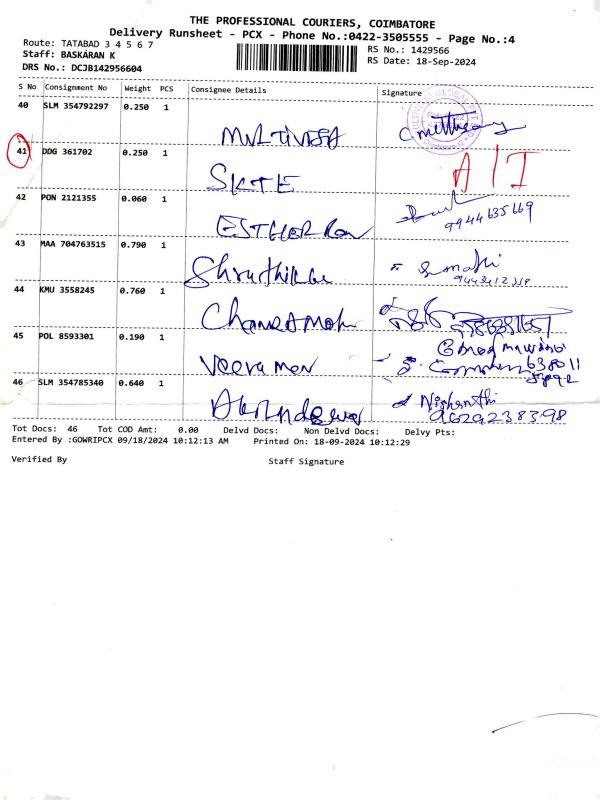 THE PROFESSIONAL COURIERS, COIMBATORE
Delivery Runsheet - PCX - Phone No.:0422-3505555 - Page No.:4
Route: TATABAD 3 4 5 6 7
Staff: BASKARAN K
DRS No.: DCJB142956604
RS No.: 1429566
RS Date: 18-Sep-2024
S No Consignment No Weight PCS Consignee Details Signature
40 SLM 354792297 0.250 1
41 DDG 361702 0.250 1
SKTE
42 PON 2121355 0.060 1
ESTHER
9944635669
43 MAA 704763515 0.790 1
44 KMU 3558245 0.760 1
45 POL 8593301 0.190 1
Veeraman
46 SLM 354785340 0.640 1
Nishanthi
9629238398
Tot Docs: 46 Tot COD Amt: 0.00 Delvd Docs: Non Delvd Docs: Delvy Pts:
Entered By :GOWRIPCX 09/18/2024 10:12:13 AM Printed On: 18-09-2024 10:12:29
Verified By Staff Signature